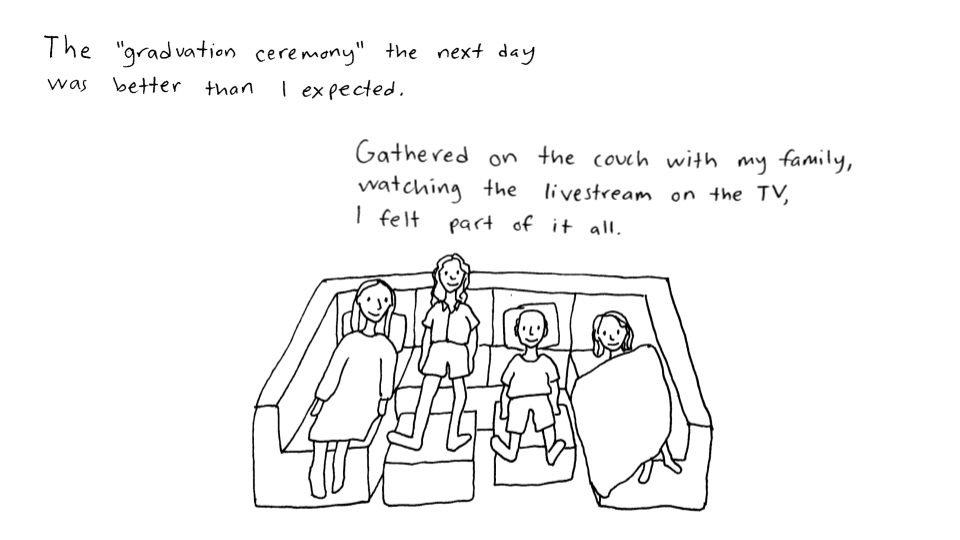 The "graduation ceremony" the next day
was better than I expected.
Gathered on the couch with my family,
watching the livestream on the TV,
I felt part of it all.